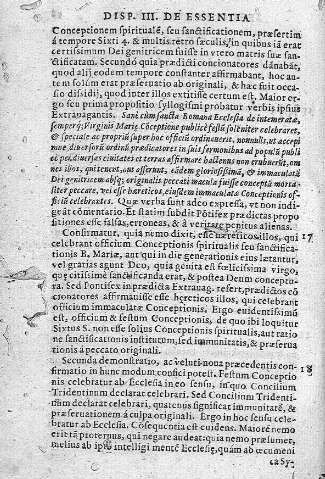 DISP. III. DE ESSENTIA
Conceptionem spiritualē, seu sanctificationem, præsertim
à tempore Sixti 4. & multis retro sæculis, in quibus iā erat
certissimum Dei genitricem fuisse in vtero matris suæ san-
ctificatam. Secundò quia prædicti concionatores dānabāt,
quod alij eodem tempore constanter affirmabant, hoc au-
tem solum erat præseruatio ab originali, & hæc fuit occa-
sio dissidij, quod inter illos extitisse certum est. Maior er-
go seu prima propositio syllogismi probatur verbis ipsius
Extrauagantis. Sanè cum sancta Romana Ecclesia de intemeratæ,
semperq; Virginis Mariæ Cōceptione publicè festū soliuiter celebraret,
& speciale ac propriū super hoc officiū ordinauerit, nonnulli, vt accepi
mus diuersorū ordinū prædicatores in suis sermonibus ad populū publi
cè per diuersas ciuitates et terras affirmare hactenus non erubuerūt, om
nes illos, qui tenent, aut asserunt, eādem gloriosissimā, & immaculatā
Dei genitricem absq; originalis peccati macula fuisse conceptā morta-
liter peccare, vel esse hæreticos, eiusdem immaculatæ Conceptionis of-
ficiū celebrantes. Quæ verba sunt adeo expressa, vt non indi-
geāt cōmentario. Et statim subdit Pōtifex prædictas propo
sitiones esse falsas, erroneas, & à veritate penitus alienas.
Confirmatur, quia nemo dixit, esse hæreticos illos, qui 17
celebrant officium Conceptionis spiritualis seu sanctifica-
tionis B. Mariæ, aut qui in die generationis eius lætantur,
vel gratias agunt Deo, quia genita est fœlicissima virgo,
quæ citissimè sanctificanda erat, & postea Deum conceptu-
ra. Sed Pontifex in prædicta Extrauag. refert, prædictos cō
cionatores affirmauisse esse hæreticos illos, qui celebrant
officium immaculatæ Conceptionis. Ergo euidentissimū
est, officium & festum Conceptionis, de quo ibi loquitur
Sixtus 5. non esse solius Conceptionis spiritualis, aut ratio
ne sanctificationis institutum, sed immunitatis, & præserua
tionis à peccato originali.
Secunda demonstratio, ac veluti noua præcedentis con- 18
firmatio in hunc modum confici potest. Festum Conceptio
nis celebratur ab Ecclesia in eo sensu, in quo Concilium
Tridentinum declarat celebrari. Sed Concilium Tridenti-
num declarat celebrari, quatenus significat immunitatē, &
præseruationem à culpa originali. Ergo in hoc sensu cele-
bratur ab Ecclesia. Cōsequentia est euidens. Maiorē nemo
erit tā proteruus, qui negare audeat: quia nemo præsumet,
melius ab ipso intelligi mentē Ecclesiæ, quàm ab œcumeni